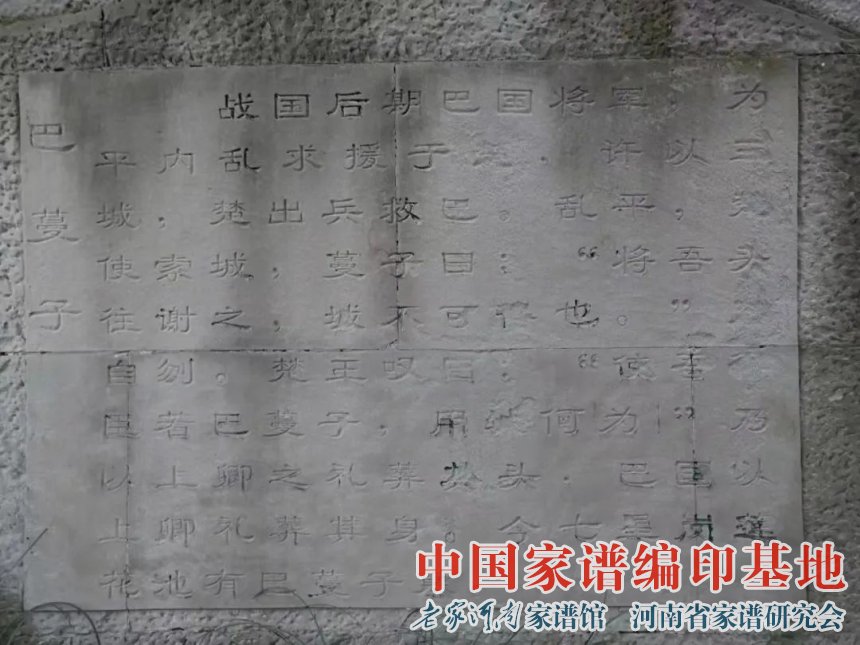 巴蔓子
战国后期巴国将军，为
平内乱求援于楚，许以三
城，楚出兵救巴。乱平，楚
使索城，蔓子曰：“将吾头
往谢之，城不可得也。”
自刎。楚王叹曰：“使吾
臣若巴蔓子，用城何为”乃
以上卿之礼葬其头，巴国以
上卿礼葬其身。今七星岗莲
花池有巴蔓子
中国家谱编印基地
老家河南家谱馆 河南省家谱研究会